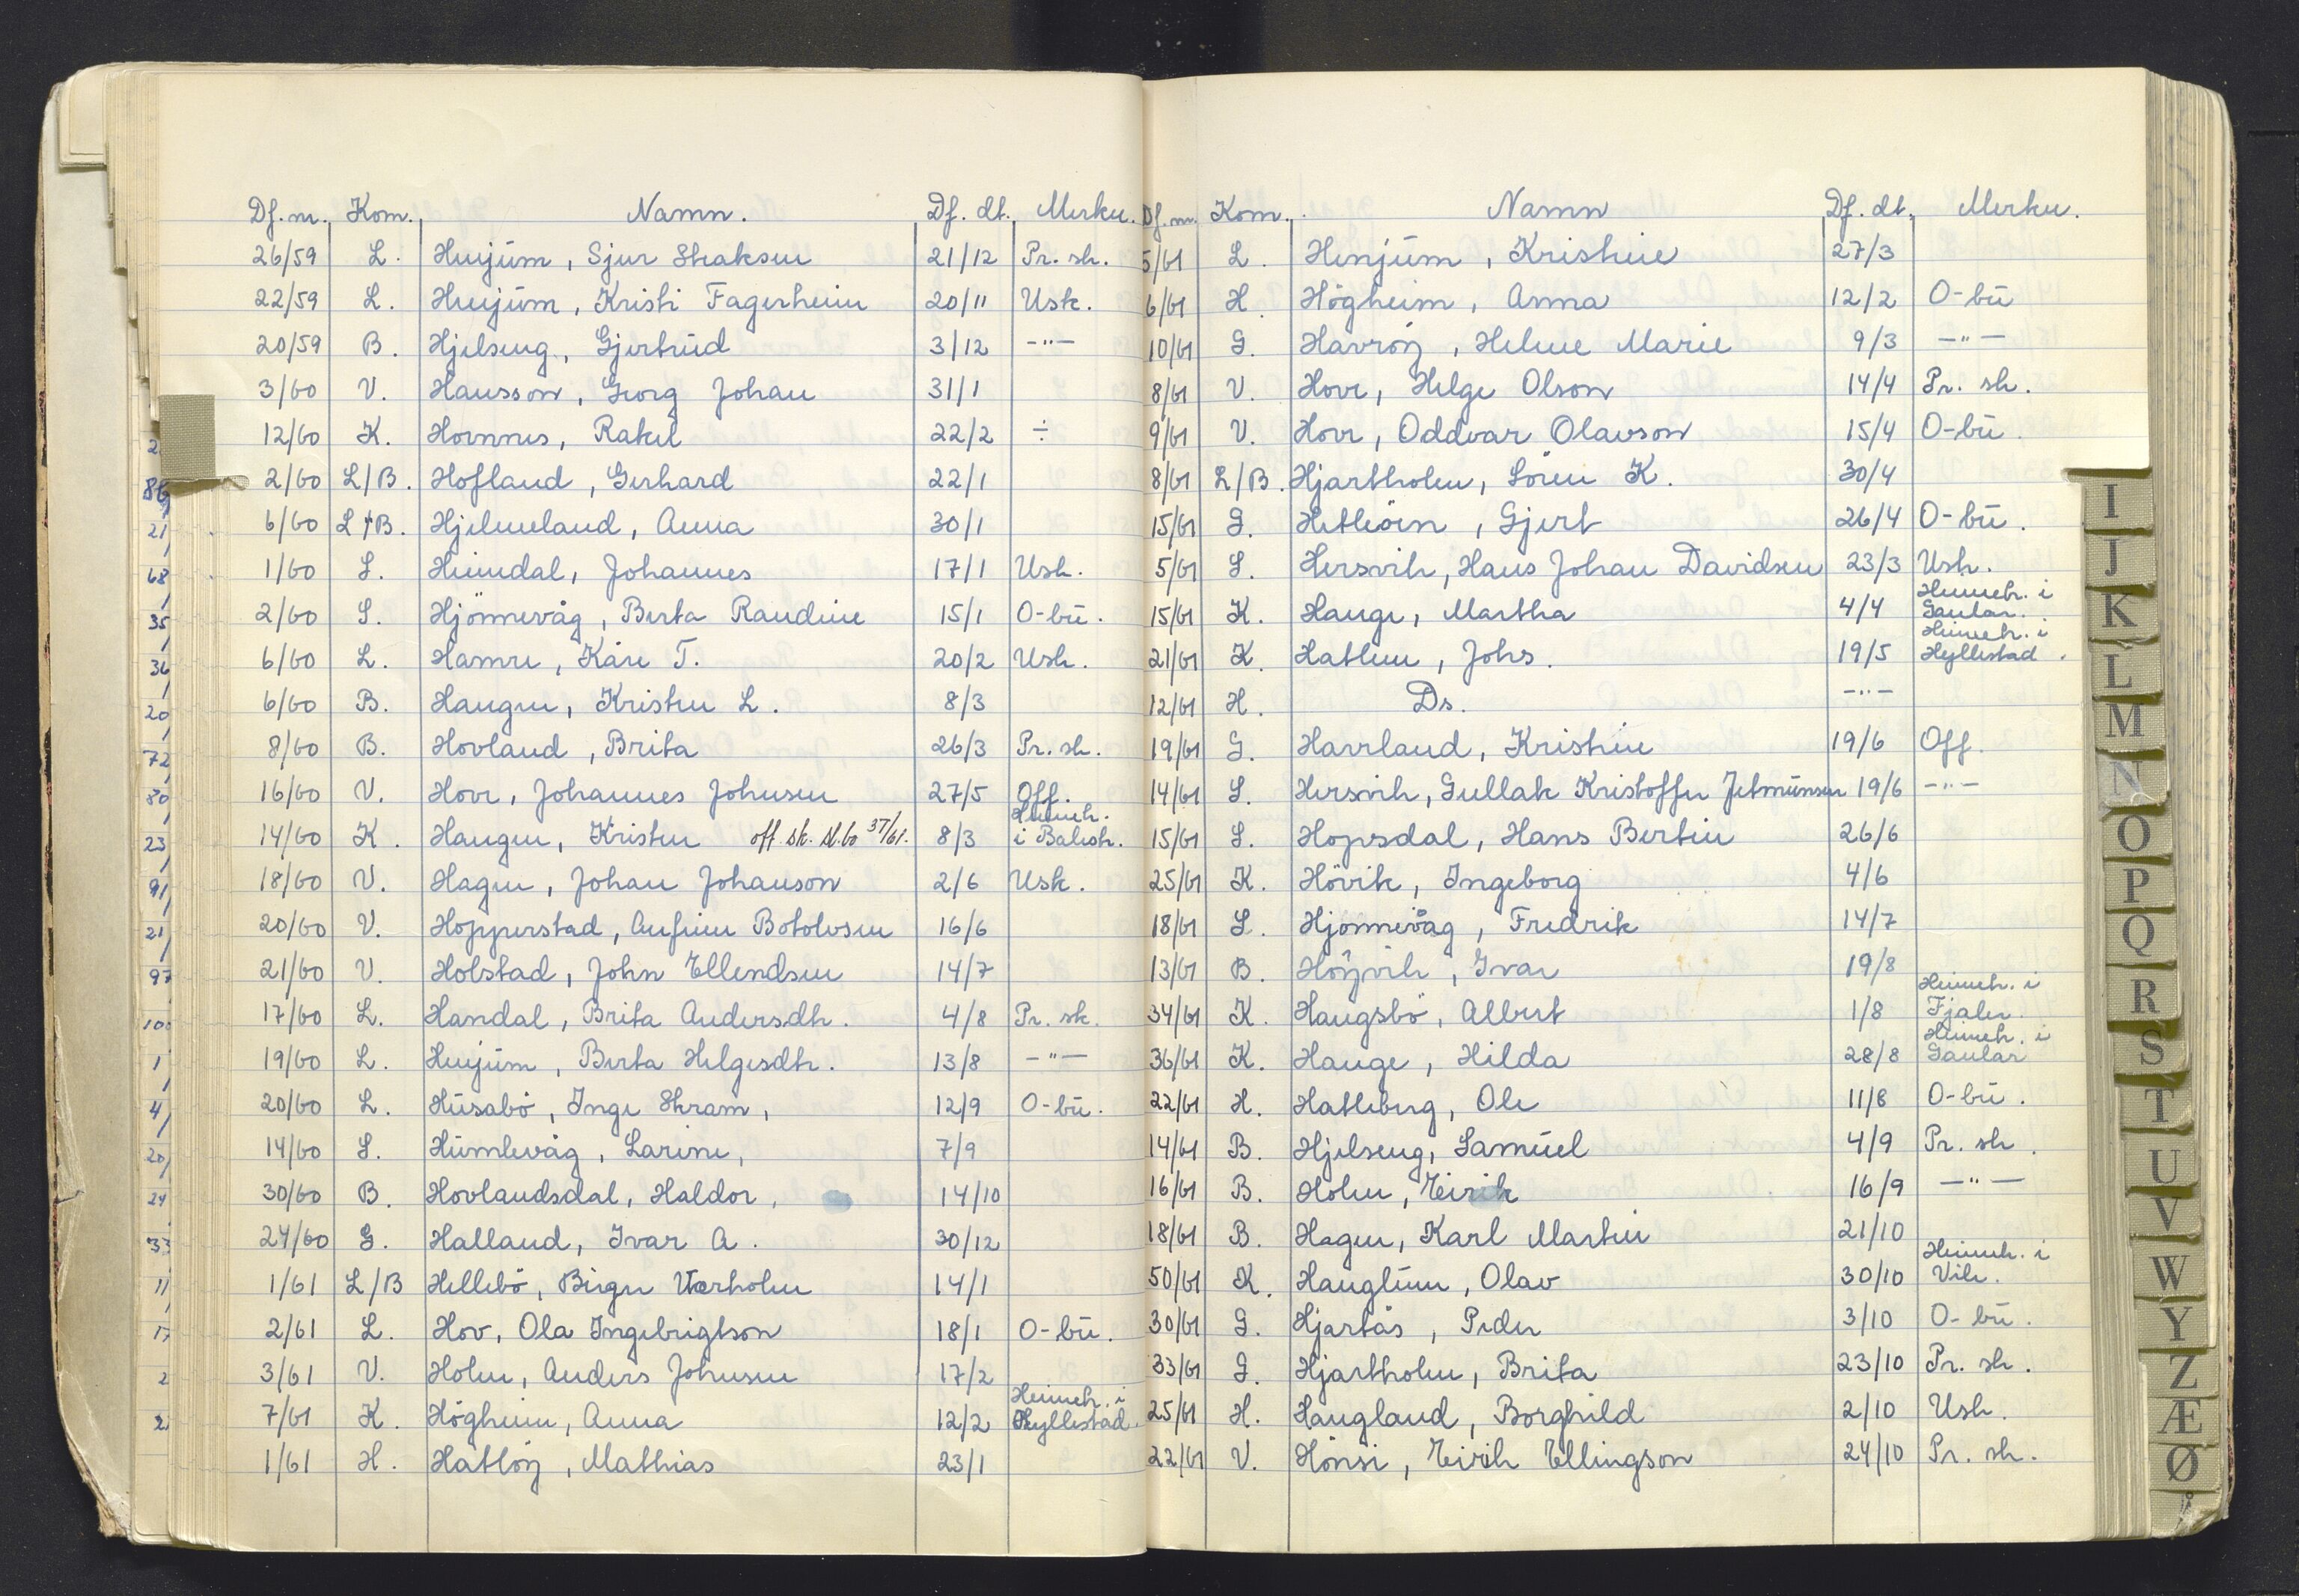 Df. nr. Kom. Namn. Df. dt. Merkn.
26/59 L. Henjum, Sjur Eraksen 21/12 Pr. sk.
22/59 L. Henjum, Kristi Fagerheim 20/11 Usk.
20/59 B. Hjelseng, Gjertrud 3/12 -"-
3/60 V. Hansson, Georg Johan 31/1
12/60 K. Hovnnes, Rakel 22/2 ÷
2/60 L/B. Hofland, Gerhard 22/1
6/60 L/B. Hjelmeland, Anna 30/1
1/60 S. Heimdal, Johannes 17/1 Usk.
2/60 S. Hjönnevåg, Berta Raudine 15/1 O-bu.
6/60 L. Hamre, Kåre T. 20/2 Usk.
6/60 B. Haugen, Kristen L. 8/3
8/60 B. Hovland, Brita 26/3 Pr. sk.
16/60 V. Hove, Johannes Johnsen 27/5 Off.
14/60 K. Haugen, Kristen off. sk. sl. bo 37/61. 8/3 Heimeh. i Balestr.
18/60 V. Hagen, Johan Johanson 2/6 Usk.
20/60 V. Hopperstad, Anfinn Botolvsen 16/6
21/60 V. Holstad, John Ellendsen 14/7
17/60 L. Handal, Brita Andersdtr. 4/8 Pr. sk.
19/60 L. Henjum, Berta Helgesdtr. 13/8 -"-
20/60 L. Husabö, Inge Skram, 12/9 O-bu.
14/60 S. Humlevåg, Larine, 7/9
30/60 B. Hovlandsdal, Haldor, 14/10
24/60 G. Halland, Ivar A. 30/12
1/61 L/B Hellebö, Birger Værholm 14/1
2/61 L. Hov, Ola Ingebrigtson 18/1 O-bu.
3/61 V. Holen, Anders Johnsen 17/2
7/61 K. Högheim, Anna 12/2 Heimeh. i Hyllestad.
1/61 H. Hatlöy, Mathias 23/1
Df. nr. Kom. Namn Df. dt. Merkn.
5/61 L. Henjum, Kristine 27/3
6/61 H. Högheim, Anna 12/2 O-bu
10/61 G. Havröy, Helene Marie 9/3 -"-
8/61 V. Hove, Helge Olson 14/4 Pr. sk.
9/61 V. Hove, Oddvar Olavson 15/4 O-bu.
8/61 L/B. Hjartholm, Sören K. 30/4
15/61 G. Hetleöen, Gjert 26/4 O-bu.
5/61 S. Hersvik, Hans Johan Davidsen 23/3 Usk.
15/61 K. Hauge, Martha 4/4 Heimeh. i Gaular.
21/61 K. Hatlem, Johs. 19/5 Heimeh. i Hyllestad.
12/61 H. Ds. -"-
19/61 G. Havrland, Kristine 19/6 Off.
14/61 S. Hersvik, Gullak Kristoffer Jetmunsen 19/6 -"-
15/61 S. Hopsdal, Hans Bertin 26/6
25/61 K. Hövik, Ingeborg 4/6
18/61 S. Hjönnevåg, Fredrik 14/7
13/61 B. Höyvik, Ivar 19/8
34/61 K. Haugsbö, Albert 1/8 Heimeh. i Fjaler.
36/61 K. Hauge, Hilda 28/8 Heimeh. i Gaular
22/61 H. Hatleberg, Ole 11/8 O-bu.
14/61 B. Hjelseng, Samuel 4/9 Pr. sk.
16/61 B. Holen, Eirik 16/9 -"-
18/61 B. Hagen, Karl Martin 21/10
50/61 K. Hauglum, Olav 30/10 Heimeh. i Vik.
30/61 G. Hjartås, Peder 3/10 O-bu.
33/61 G. Hjartholm, Brita 23/10 Pr. sk.
25/61 H. Haugland, Borghild 2/10 Usk.
22/61 V. Hönsi, Eirik Ellingson 24/10 Pr. sk.
I
J
K
L
M
N
O
P
Q
R
S
T
U
V
W
Y
Z
Æ
Ø
Å